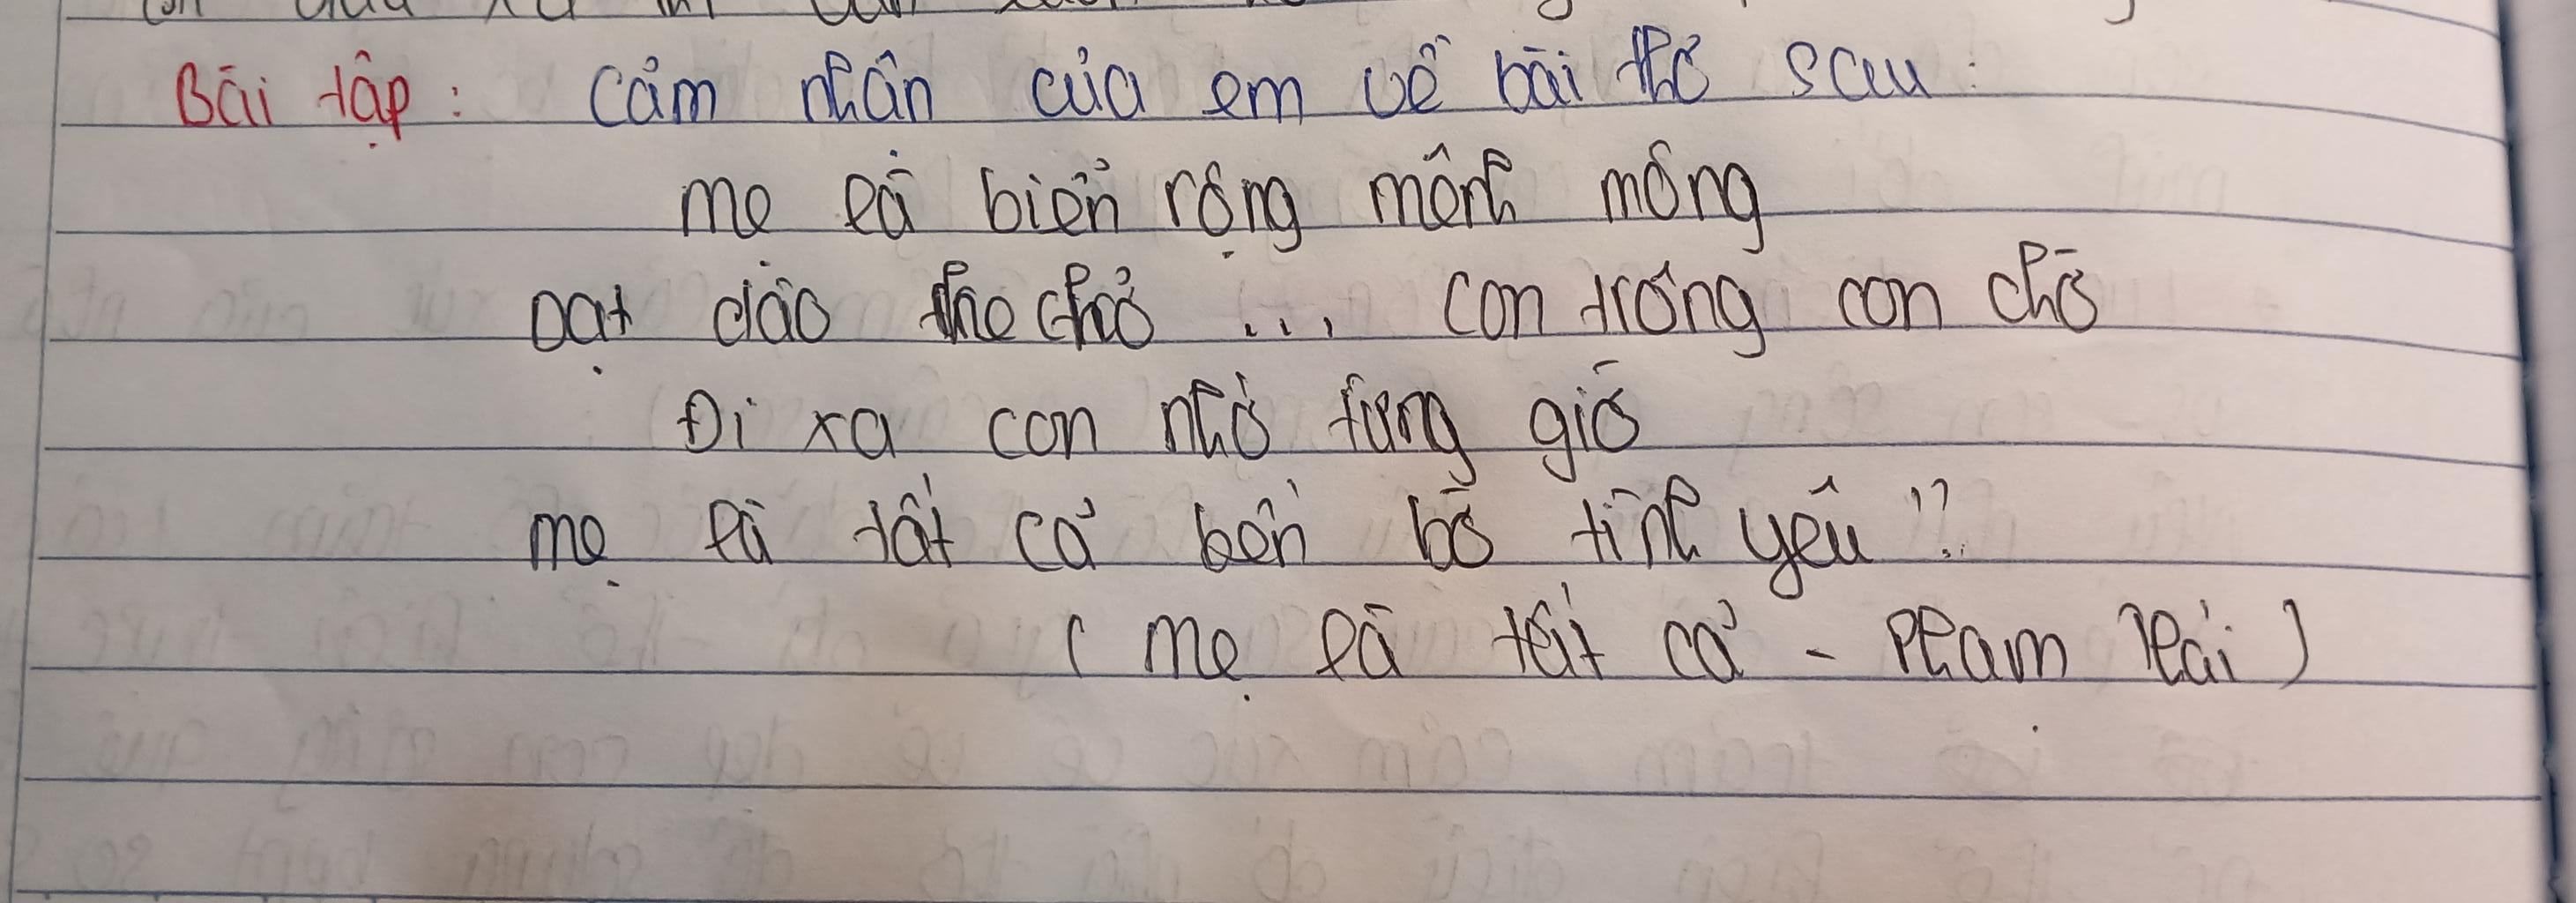 Bài tập: Cảm nhận của em về bài thơ sau:
Mẹ là biển rộng mênh mông
Dạt dào che chở ... con trông con chờ
Đi xa con nhớ từng giờ
Mẹ là tất cả bến bờ tình yêu"
(Mẹ là tất cả - Phạm Thái)